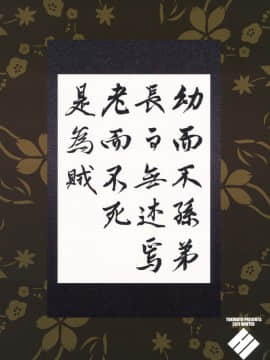 幼而不孫弟
長而無述焉
老而不死
是為賊
YOKOMOTO PRESENTS